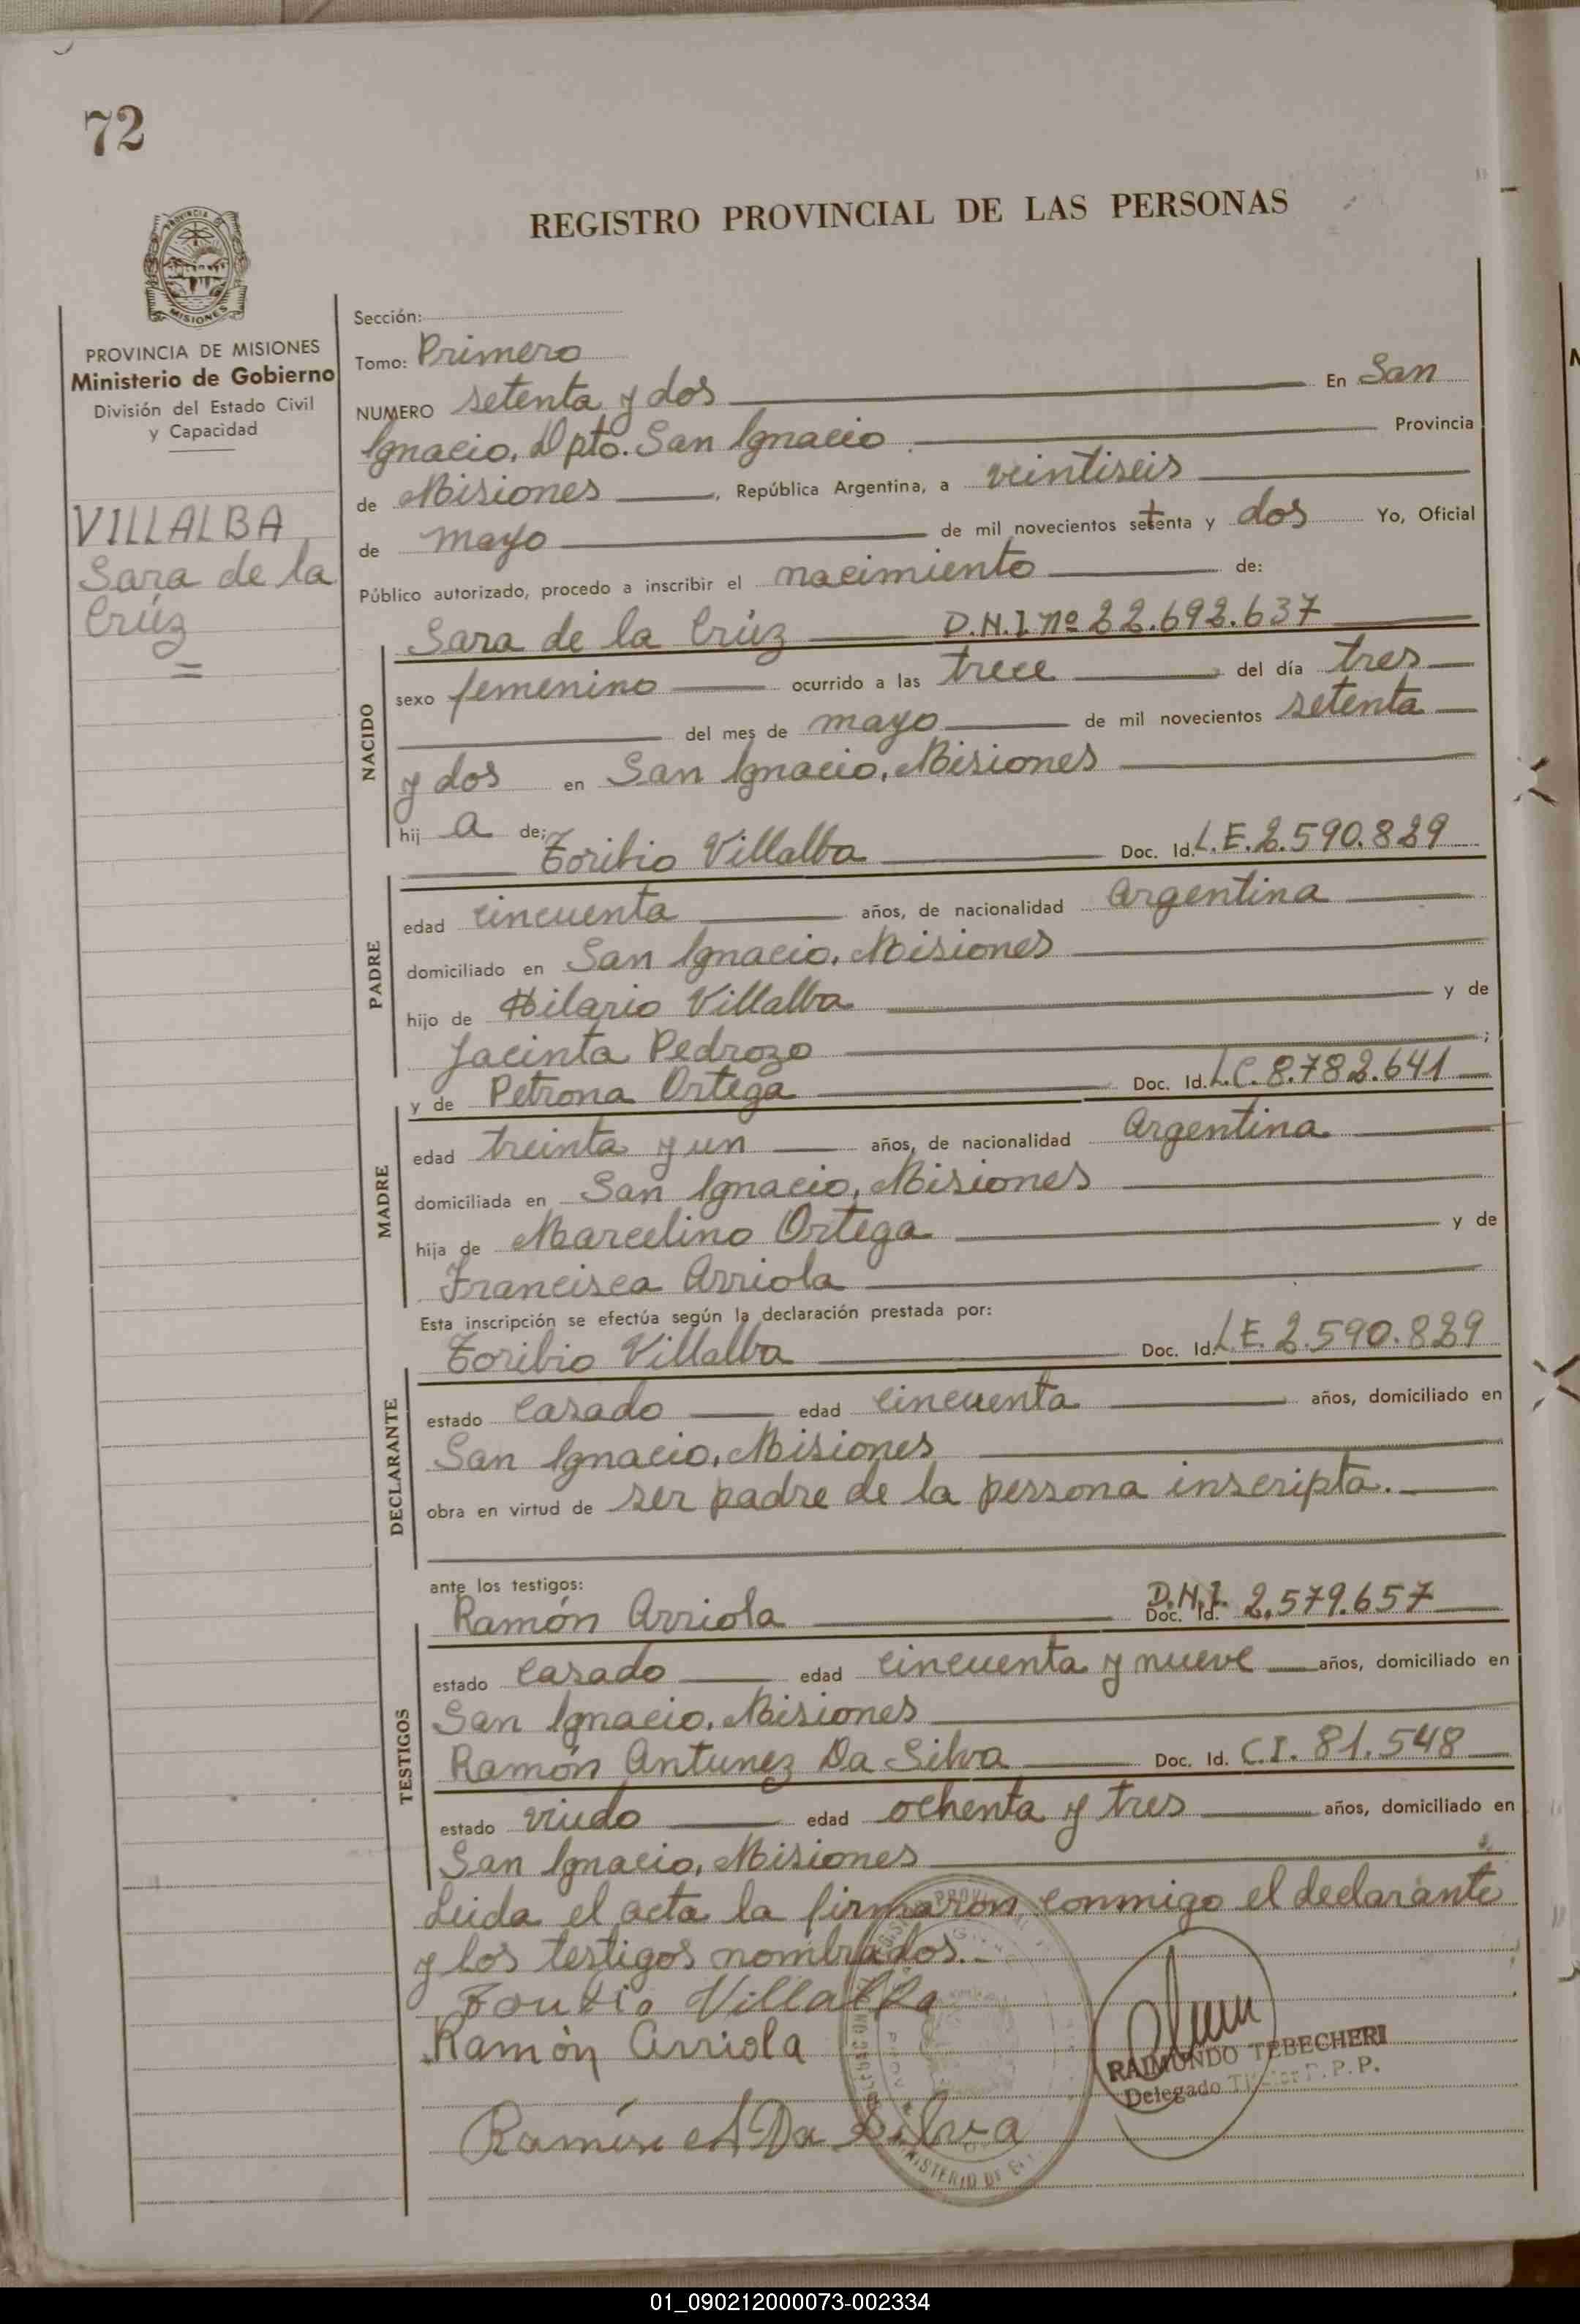 72
REGISTRO PROVINCIAL DE LAS PERSONAS
PROVINCIA MISIONES
PROVINCIA DE MISIONES
Ministerio de Gobierno
División del Estado Civil
y Capacidad
VILLALBA
Sara de la
Crúz
Sección:
Tomo: Primero
NUMERO setenta y dos En San
Ignacio, Dpto. San Ignacio Provincia
de Misiones, República Argentina, a veintiseis
de mayo de mil novecientos setenta y dos Yo, Oficial
Público autorizado, procedo a inscribir el nacimiento de:
Sara de la Crúz D.N.I. nº 22.692.637
NACIDO
sexo femenino ocurrido a las trece del día tres
del mes de mayo de mil novecientos setenta
y dos en San Ignacio, Misiones
hij a de;
Toribio Villalba Doc. Id. L.E. 2.590.829
PADRE
edad cincuenta años, de nacionalidad Argentina
domiciliado en San Ignacio, Misiones
hijo de Hilario Villalba y de
Jacinta Pedrozo ;
y de Petrona Ortega Doc. Id. L.C. 8.782.641
MADRE
edad treinta y un años, de nacionalidad Argentina
domiciliada en San Ignacio, Misiones
hija de Marcelino Ortega y de
Francisca Arriola
Esta inscripción se efectúa según la declaración prestada por:
Toribio Villalba Doc. Id. L.E. 2.590.829
DECLARANTE
estado casado edad cincuenta años, domiciliado en
San Ignacio, Misiones
obra en virtud de ser padre de la persona inscripta.
ante los testigos:
Ramón Arriola D.N.I. Doc. Id. 2.579.657
TESTIGOS
estado casado edad cincuenta y nueve años, domiciliado en
San Ignacio, Misiones
Ramón Antunez Da Silva Doc. Id. C.I. 81.548
estado viudo edad ochenta y tres años, domiciliado en
San Ignacio, Misiones
Leida el acta la firmaron conmigo el declarante
y los testigos nombrados.
Villalba
Ramón Arriola
Ramón A Da Silva
RAIMUNDO TEBECHERI
Delegado
MINISTERIO DE
01_090212000073-002334